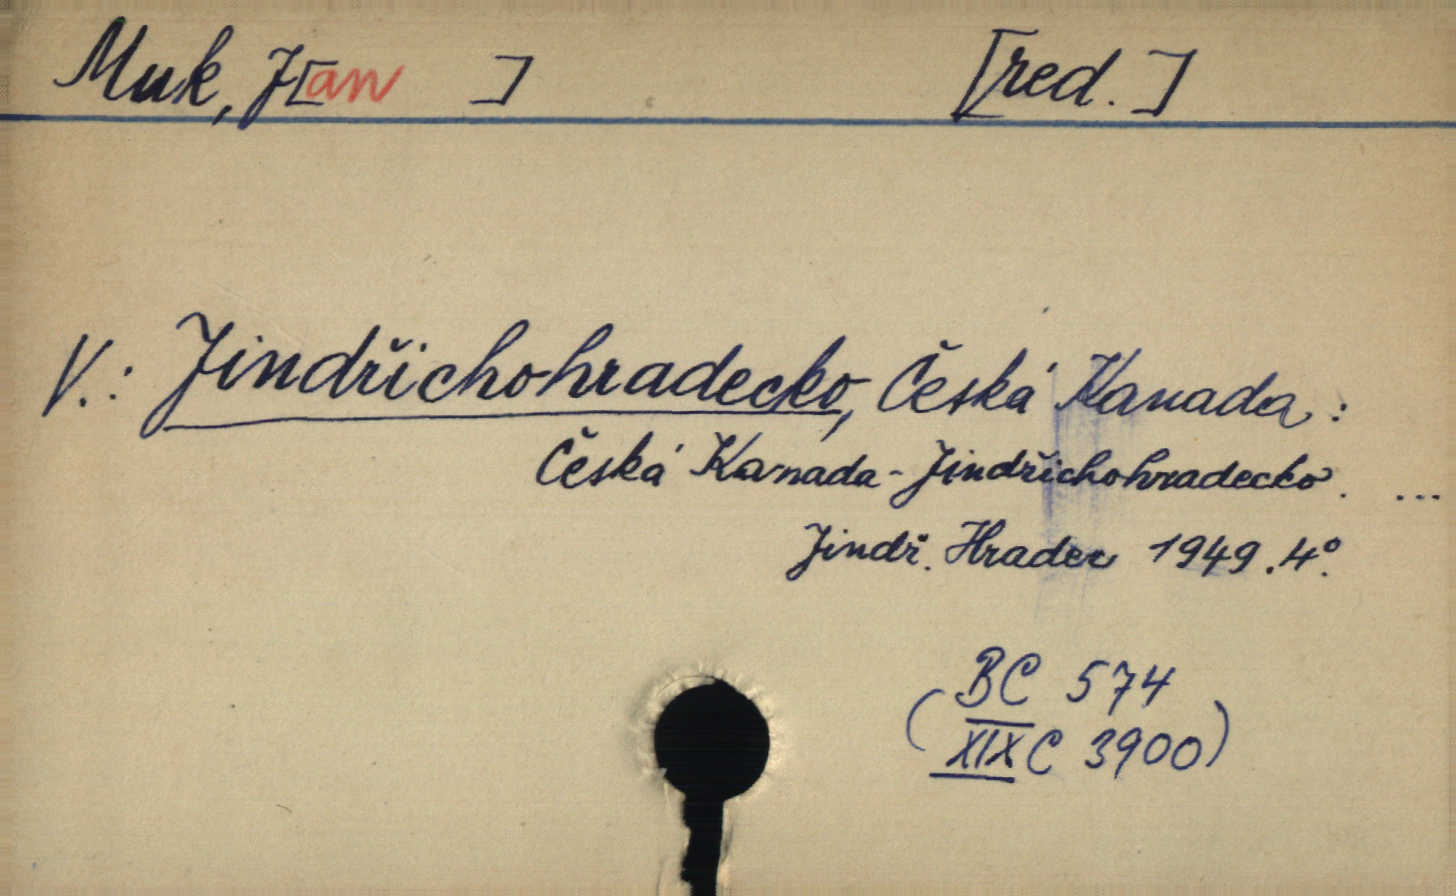 Muk, J[an ] [red.]
V.: Jindřichohradecko, Česká Kanada:
Česká Kanada - Jindřichohradecko. ...
Jindř. Hradec 1949. 4°.
BC 574
(XIX C 3900)